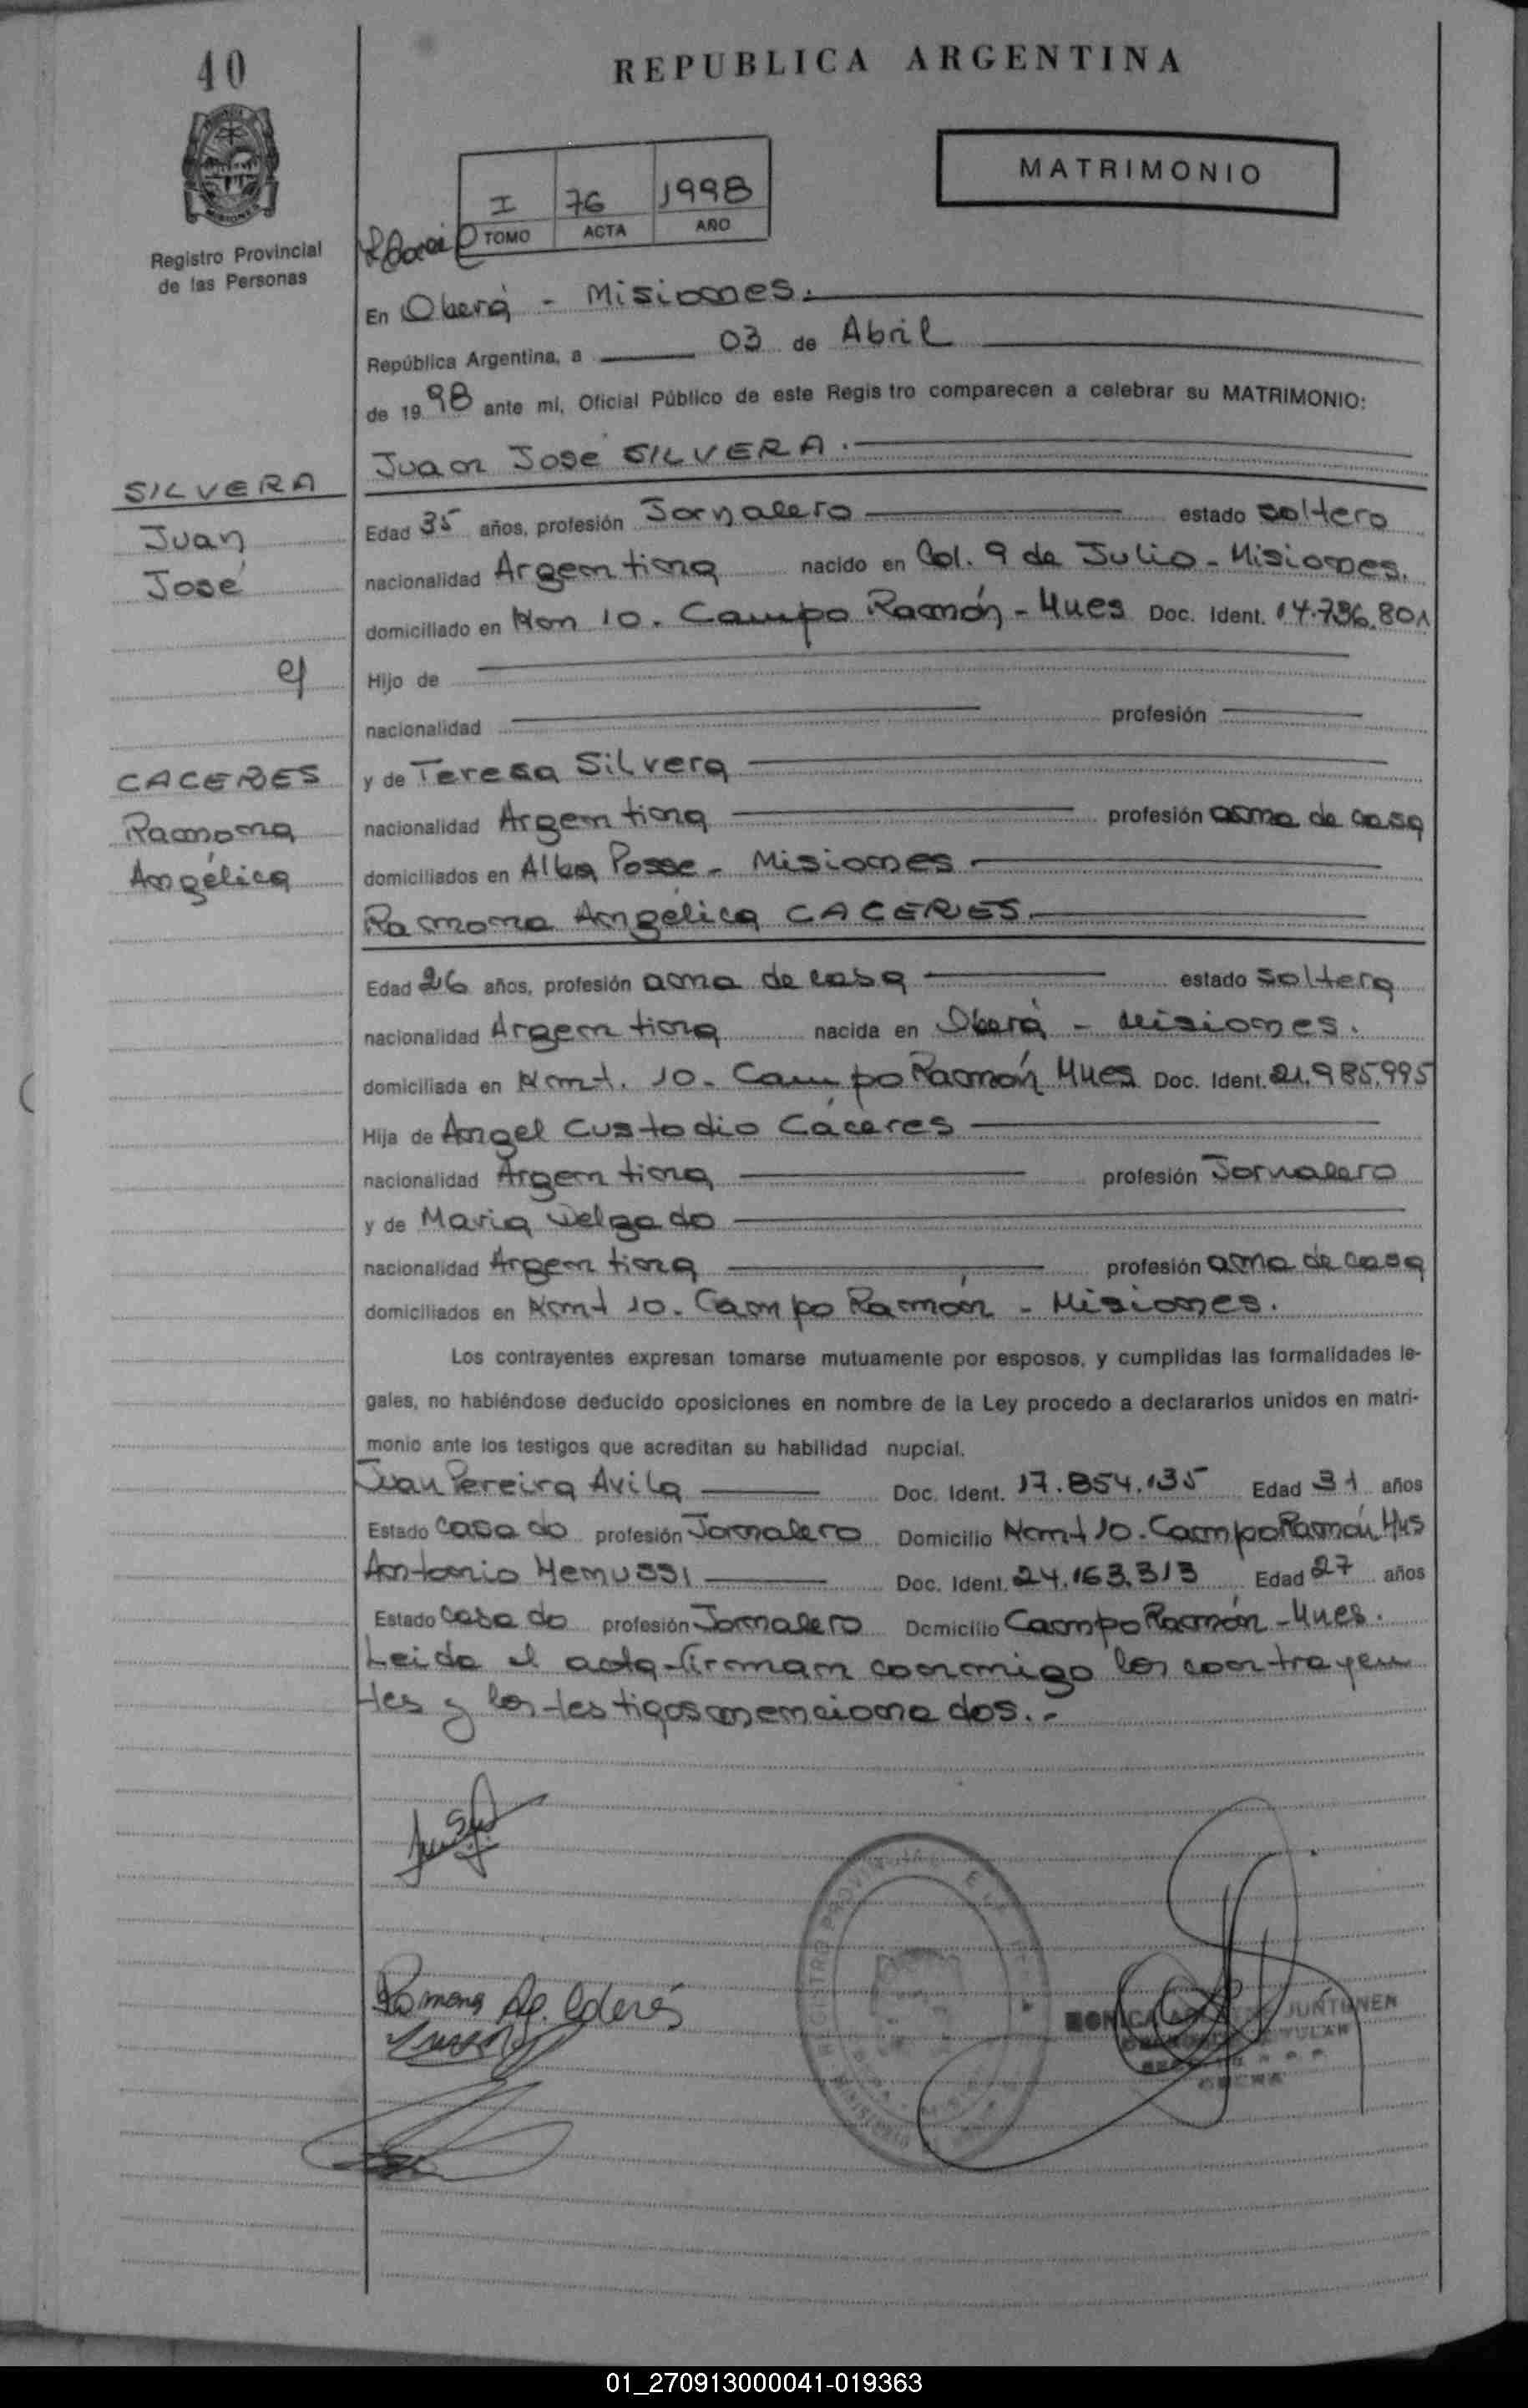 40
REPUBLICA ARGENTINA
MATRIMONIO
I 76 1998
TOMO ACTA AÑO
Registro Provincial
de las Personas
En Oberá - Misiones.
República Argentina, a 03 de Abril
de 1998 ante mi, Oficial Público de este Registro comparecen a celebrar su MATRIMONIO:
Juan José SILVERA.
SILVERA
Juan
José
c/
CACERES
Ramona
Angélica
Edad 35 años, profesión Jornalero estado soltero
nacionalidad Argentina nacido en Col. 9 de Julio - Misiones.
domiciliado en Km 10. Campo Ramón - Mnes Doc. Ident. 14.736.801
Hijo de
nacionalidad profesión
y de Teresa Silvera
nacionalidad Argentina profesión ama de casa
domiciliados en Alba Posse - Misiones
Ramona Angélica CACERES.
Edad 26 años, profesión ama de casa estado soltera
nacionalidad Argentina nacida en Oberá - Misiones.
domiciliada en Kmt. 10 - Campo Ramón Mnes Doc. Ident. 21.985.995
Hija de Angel Custodio Cáceres
nacionalidad Argentina profesión Jornalero
y de Maria Delgado
nacionalidad Argentina profesión ama de casa
domiciliados en Kmt 10 - Campo Ramón - Misiones.
Los contrayentes expresan tomarse mutuamente por esposos, y cumplidas las formalidades le-
gales, no habiéndose deducido oposiciones en nombre de la Ley procedo a declararlos unidos en matri-
monio ante los testigos que acreditan su habilidad nupcial.
Juan Pereira Avila Doc. Ident. 17.854.135 Edad 31 años
Estado casado profesión Jornalero Domicilio Kmt 10 - Campo Ramón Mns
Antonio Hemussi Doc. Ident. 24.163.313 Edad 27 años
Estado casado profesión Jornalero Domicilio Campo Ramón - Mnes.
Leida el acta firman conmigo los contrayen
tes y los testigos mencionados.-
Ramona A. Cáceres
JUNTUNEN
TITULAR
OBERA
01_270913000041-019363